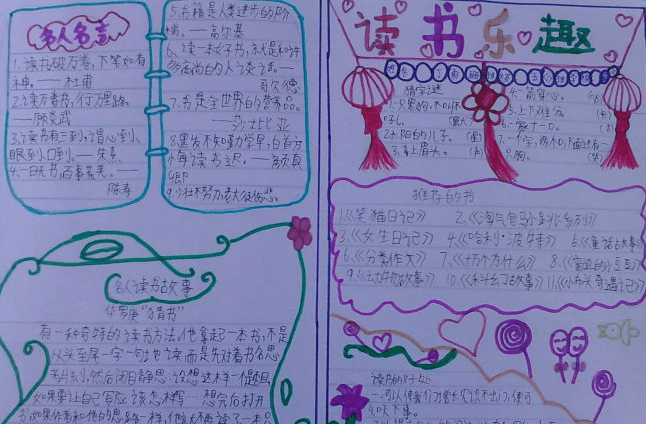 名人名言
1.读书破万卷,下笔如有
神。——杜甫
2.读万卷书,行万里路。
——顾炎武
3.读书有三到,谓心到、
眼到、口到。——朱熹
4.一日无书,百事荒芜。——
陈寿
5.书籍是人类进步的阶
梯。——高尔基
6.读一本好书,就是和许
多高尚的人谈话。——
哥尔德
7.书是全世界的营养品。
——莎士比亚
8.黑发不知勤学早,白首方
悔读书迟。——颜真
卿
9.少壮不努力,老大徒伤悲。
名人读书故事
华罗庚“猜书”
有一种奇特的读书方法,他拿起一本书,不是
从头至尾一字一句地读,而是先对着书名思
考然后闭目静思,设想这样一个题目,
如果要让自己写应该怎样写 想完后打开
书,如果作者和他的思路一样,他就不再读了一本
读书乐趣
猜字谜
1.一只黑狗,不叫不
吼。
2.太阳的儿子。
3.上下难分。
4.一箭穿心。
5.
6.一家十一口。
7.一个字,两个口,下面还有一
只狗。
推荐的书
1.《笑猫日记》 2.《淘气包马小跳系列》
3.《女生日记》 4.《哈利·波特》 5.《童话故事》
6.《分类作文》 7.《十万个为什么》 8.《窗边的小豆豆》
9.《故事》 10.《科幻故事》 11.《小布头奇遇记》
读书的好处
一.可以使我们增长见识不出门,便可
知天下事。